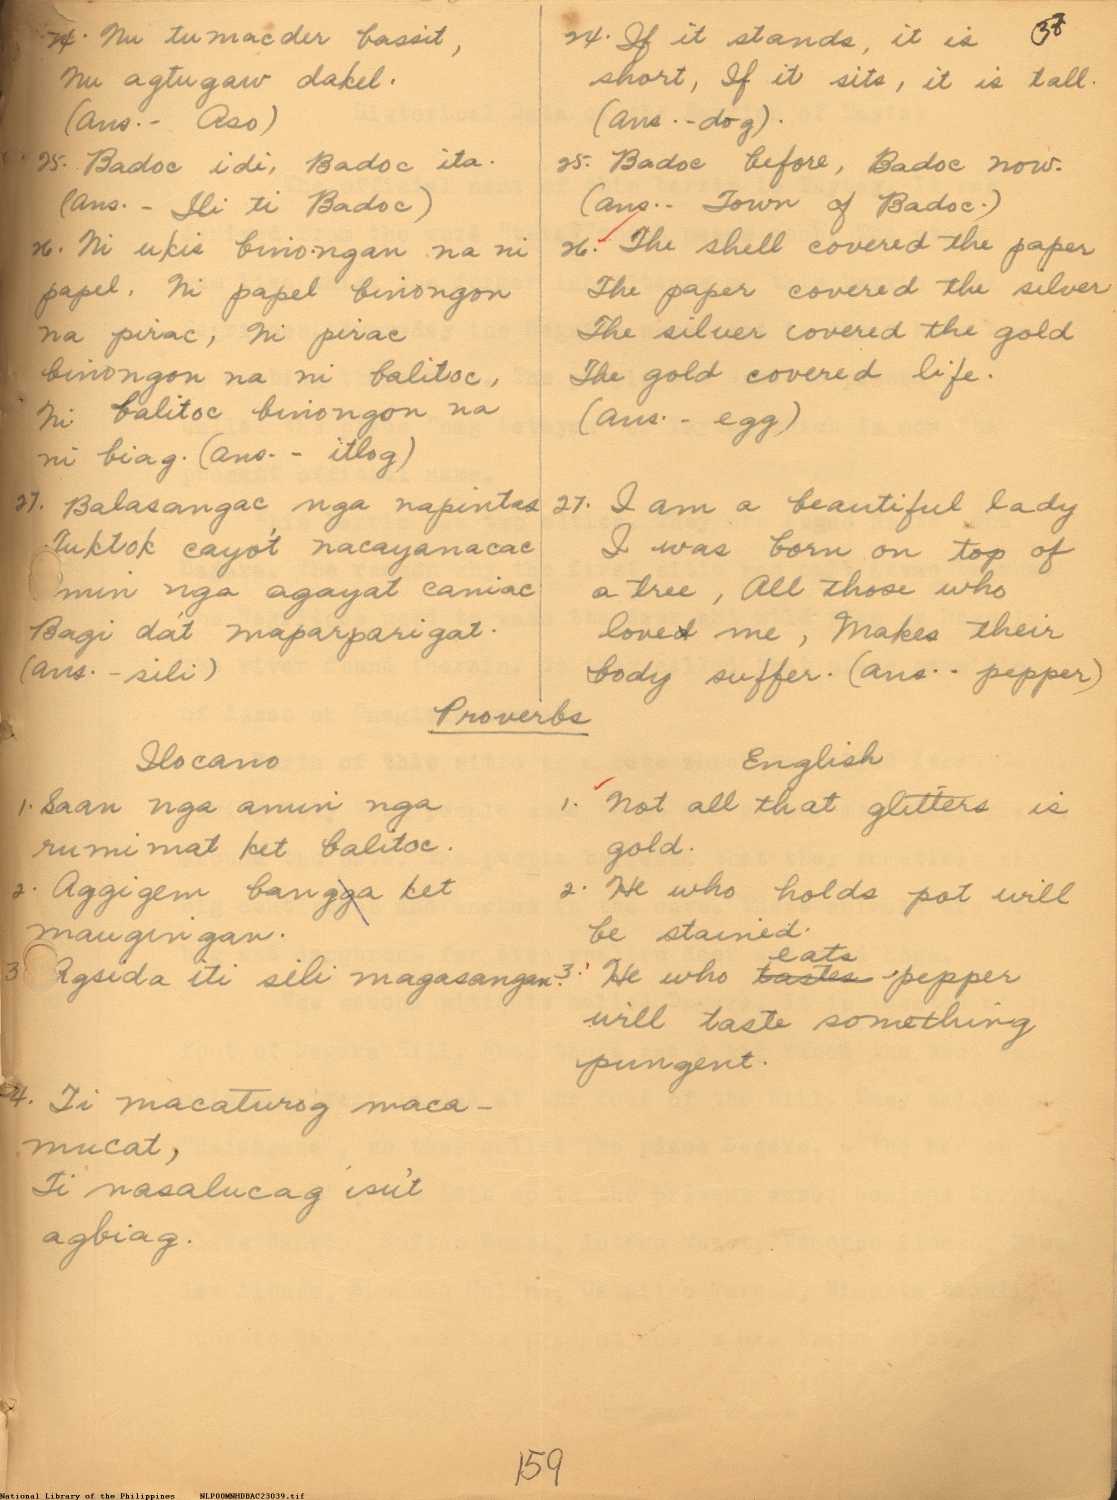 38
24. Nu tumacder bassit,
nu agtugaw dakel.
(Ans.- Aso)
25. Badoc idi, Badoc ita.
(Ans. - Ili ti Badoc)
26. Ni ukis binongan na ni
papel. Ni papel binongon
na pirac, Ni pirac
binongon na ni balitoc,
Ni balitoc binongon na
ni biag. (Ans. - itlog)
27. Balasangac nga napintas
Tuktok cayo't nacayanacac
min nga agayat caniac
Bagi da't maparparigat.
(Ans. - sili)
24. If it stands, it is
short, If it sits, it is tall.
(Ans. - dog).
25. Badoc before, Badoc now.
(Ans.- Town of Badoc.)
26. The shell covered the paper
The paper covered the silver
The silver covered the gold
The gold covered life.
(Ans. - egg)
27. I am a beautiful lady
I was born on top of
a tree, All those who
loved me, Makes their
body suffer. (Ans. - pepper)
Proverbs
Ilocano
1. Saan nga amin nga
rumimat ket balitoc.
2. Aggigem bangga ket
maugingan.
3 Agsida iti sili magasangan.
4. Ti macaturog maca-
mucat,
Ti nasalucag isu't
agbiag.
English
1. Not all that glitters is
gold.
2. He who holds pot will
be stained.
eats
3. He who tastes pepper
will taste something
pungent.
159
National Library of the Philippines NLP00MNHDBAC23039.tif